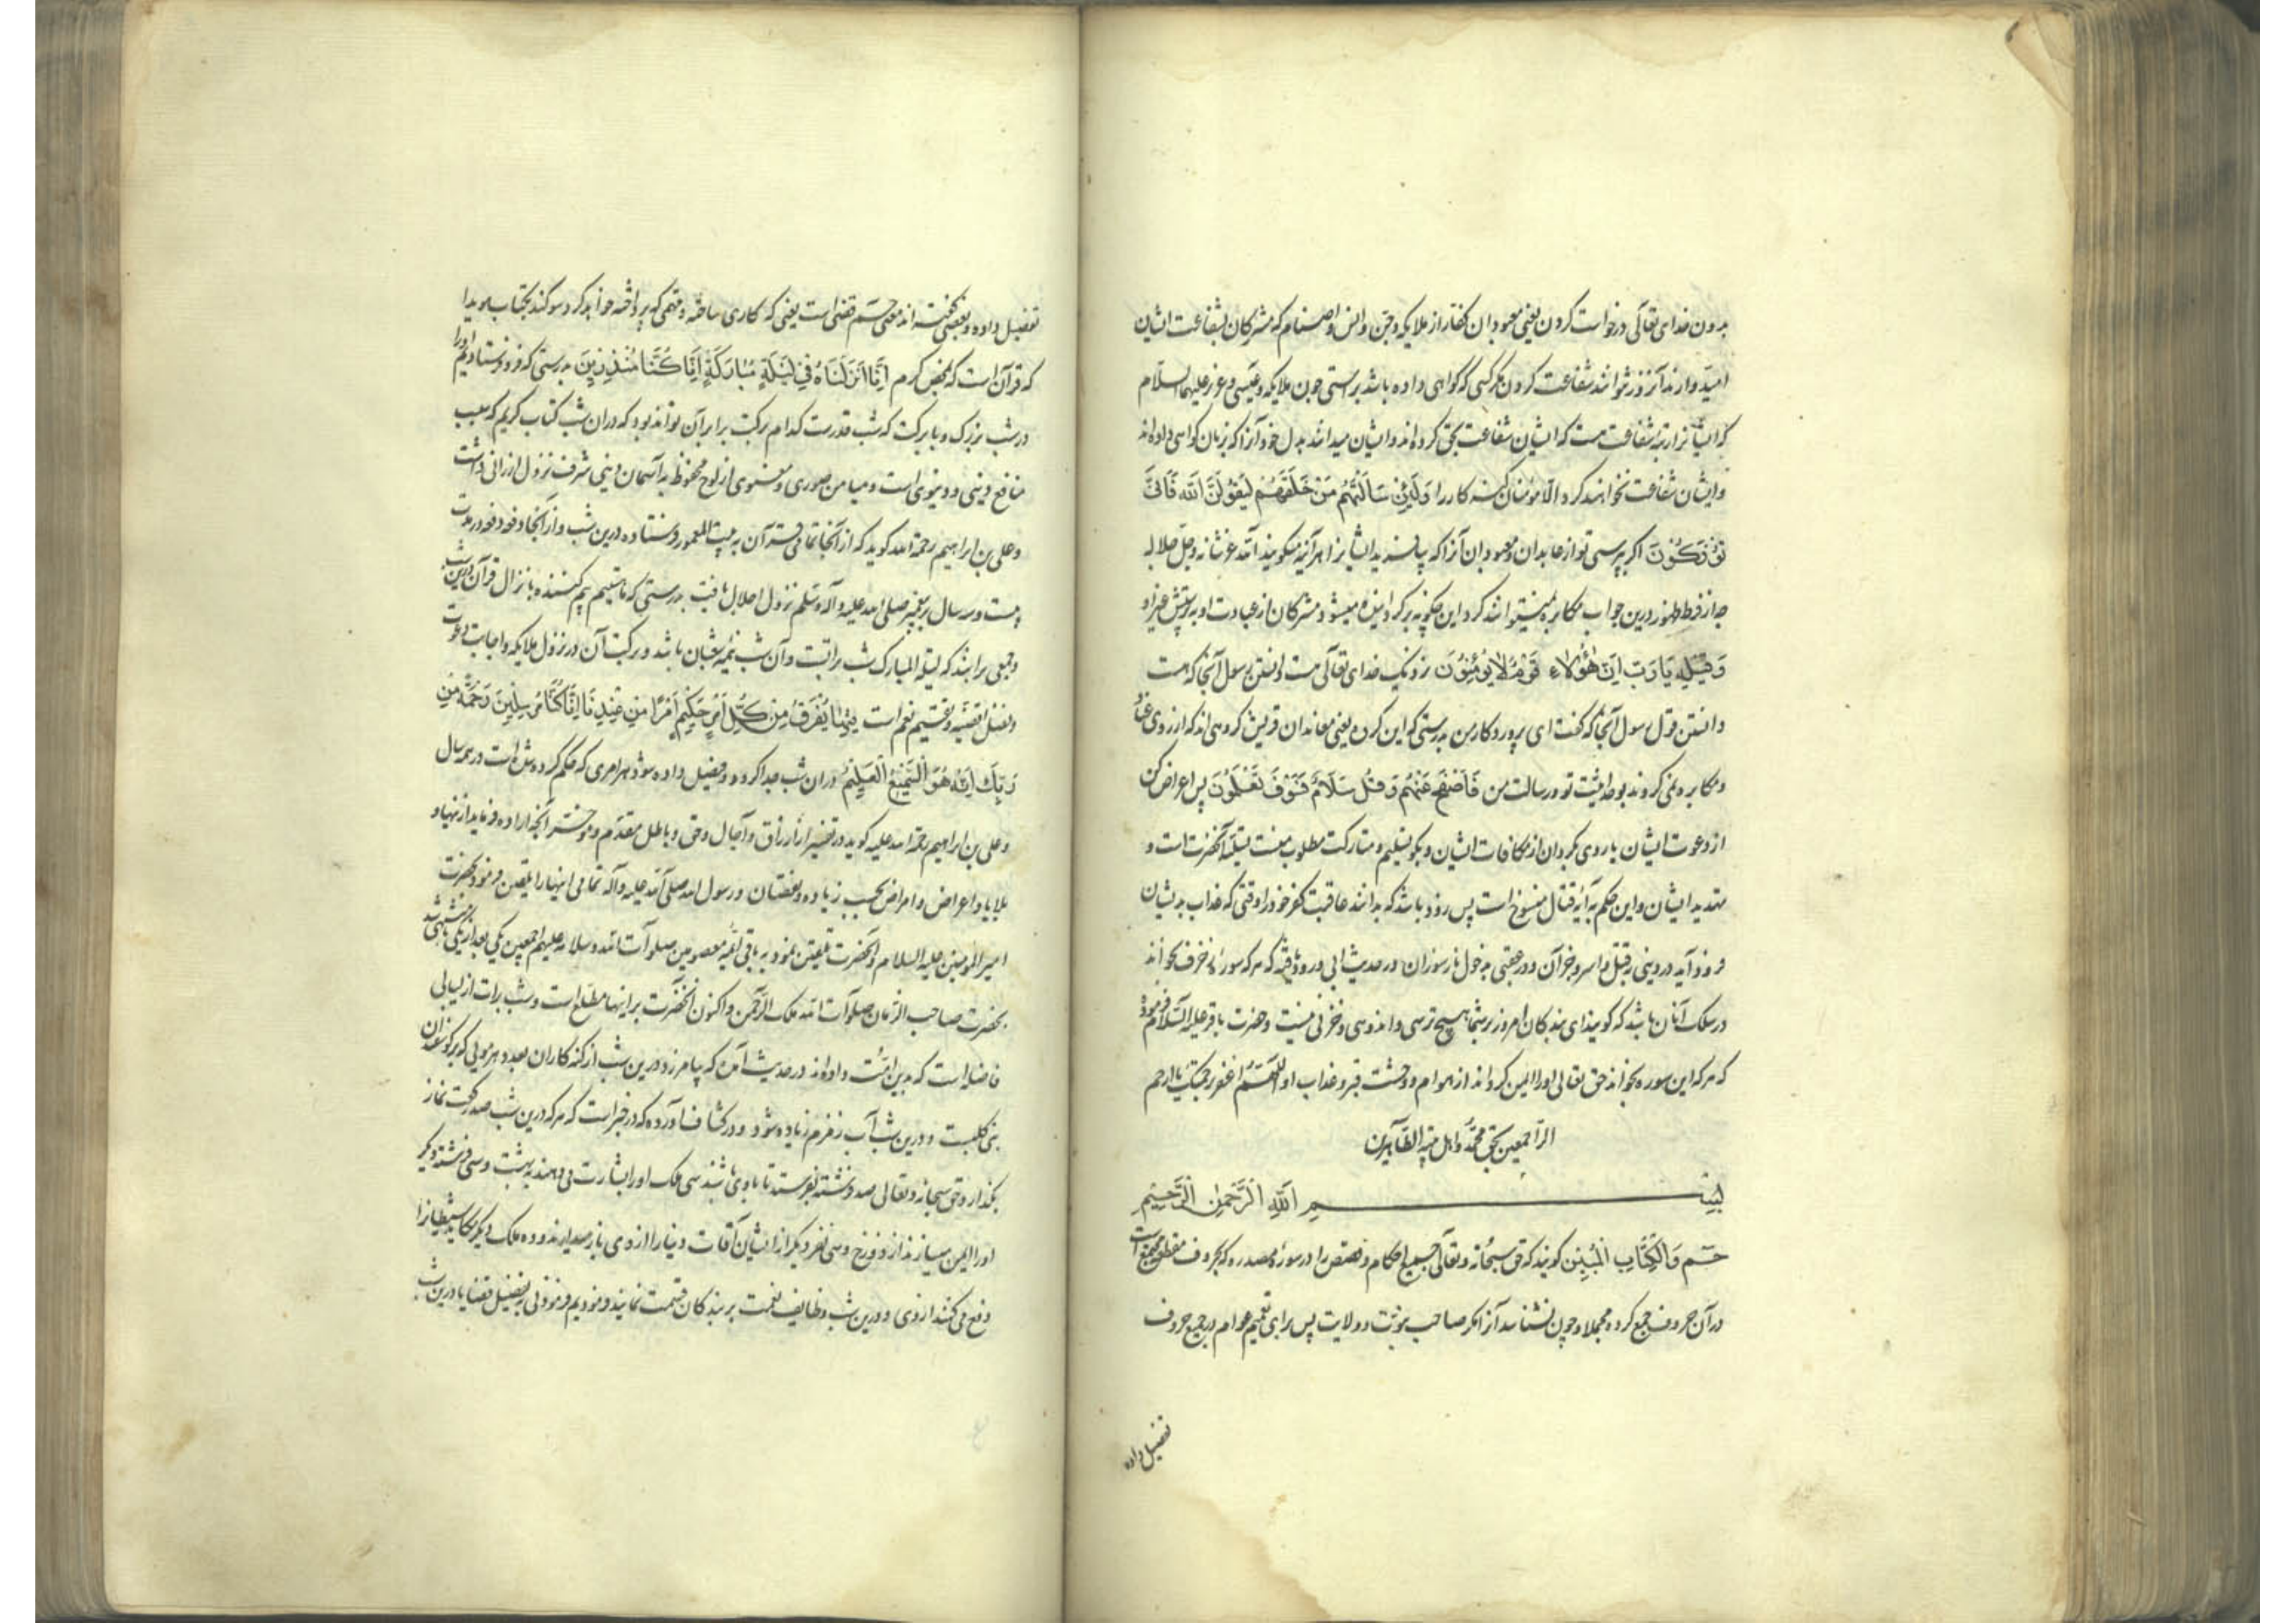 بدون خدای تعالی درخواست کردن یعنی معبودان کفار از ملایکه و جن و انس و اصنام که مشرکان بشفاعت ایشان
امیدوارند آنروز نتوانند شفاعت کردن مگر کسی که گواهی داده باشد براستی چون ملایکه و عیسی و عزیر علیهما السلام
که ایشانرا رتبه شفاعت هست که ایشان شفاعت بحق کرده‌اند و ایشان میدانند بدل خود آنرا که بزبان گواهی داده‌اند
و ایشان شفاعت نخواهند کرد الا مؤمنان کنه کار را وَلَئِنْ سَاَلْتَهُمْ مَنْ خَلَقَهُمْ لَيَقُولُنَّ اللّٰهُ فَاَنّٰى
يُؤْفَكُونَ اکر بپرسی تو از عابدان و معبودان آنرا که پیافرید ایشانرا هر آینه میکویند الله عز شانه و جل جلاله
چه از فرط ظهور درین جواب مکابره نمیتوانند کرد این چکونه برکردانیده میشوند مشرکان از عبادت او به پرستش غیر او
وَقِيلِهِ يَا رَبِّ اِنَّ هٰؤُلَاءِ قَوْمٌ لَا يُؤْمِنُونَ نزدیک خدای تعالی هست دانستن رسول آنجا که هست
دانستن قول رسول آنجا که کفت ای پروردکار من بدرستی که این کروه یعنی معاندان قریش کروهی‌اند که از روی عناد
و مکابره نمی کروند بوحدانیت تو و رسالت من فَاصْفَحْ عَنْهُمْ وَقُلْ سَلَامٌ فَسَوْفَ تَعْلَمُونَ پس اعراض کن
از دعوت ایشان یا روی بکردان از مکافات ایشان و بکو تسلیم و متارکت مطلوب منست تسلیه آنحضرت است و
تهدید ایشان و این حکم به آیه قتال منسوخ است پس زود باشد که بدانند عاقبت کفر خود را وقتی که عذاب بدیشان
فرود آید در دینی بقتل و اسر و جز آن و در عقبی بدخول نار سوزان در حدیث ابی ورود یافته که هر که سوره زخرف بخواند
در سلک آنان باشد که کویند ای بندکان امروز بر شما هیچ ترسی و اندوهی و حزنی نیست و حضرت باقر علیه السلام فرموده
که هر که این سوره بخواند حق تعالی او را ایمن کرداند از هوام و وحشت قبر و عذاب او اللهم اغفر برحمتک یا ارحم
الراحمین بحق محمد و اهل بیته الطاهرین
بسم الله الرحمن الرحیم
حٰم وَالْكِتَابِ الْمُبِينِ کویند که حق سبحانه و تعالی جمیع احکام و قصص را در سوره مصدره که بحروف مقطعه است
در آن حروف جمع کرده مجملا و چون نشناسد آنرا مکر صاحب نبوت و ولایت پس برای تفهیم عوام در جمیع حروف
تفصیل داده
تفصیل داده و بعضی کفته‌اند معنی حم قضی است یعنی که کاری ساخته و مهمی که پرداخته خواهد کرد سوکند بکتاب هویدا
که قرآن است که بمحض کرم اِنَّا اَنْزَلْنَاهُ فِي لَيْلَةٍ مُبَارَكَةٍ اِنَّا كُنَّا مُنْذِرِينَ بدرستی که فرو فرستادیم او را
در شب بزرک و با برکت که شب قدرست کدام برکت برابر آن تواند بود که در ان شب کتاب کریم که سبب
منافع دینی و دنیوی است و میامن صوری و معنوی از لوح محفوظ به آسمان دینی شرف نزول ارزانی داشت
و علی بن ابراهیم رحمة الله کوید که از آنجا تمامی قرآن به بیت المعمور فرستاده درین شب و از آنجا فرود فرود در مدت
بیست و سه سال بر پیغمبر صلی الله علیه و آله و سلم نزول اجلال یافت بدرستی که ما هستیم بیم کننده بانزال قرآن درین شب
و جمعی برانند که لیلة المبارک شب براتست و آن شب نیمه شعبان باشد و برکت آن در نزول ملایکه و اجابت دعوت
و فصل اقضیه و تقسیم نعم است فِيهَا يُفْرَقُ كُلُّ اَمْرٍ حَكِيمٍ اَمْرًا مِنْ عِنْدِنَا اِنَّا كُنَّا مُرْسِلِينَ رَحْمَةً مِنْ
رَبِّكَ اِنَّهُ هُوَ السَّمِيعُ الْعَلِيمُ در ان شب جدا کرده و فیصل داده شود هر امری که حکم کرده شده است در همه سال
و علی بن ابراهیم رحمة الله علیه کوید در تفسیر از ارزاق و آجال و حق و باطل مقدم و موخر آنچه اراده فرماید از نهیا و
بلایا و اعراض و امراض بحسب زیاده و نقصان و رسول الله صلی الله علیه و آله تمامی اینها را تلقین فرمود بحضرت
امیر المومنین علیه السلام و آنحضرت تلقین نمود به باقی ائمه معصومین صلوات الله و سلامه علیهم اجمعین یکی بعد از یکی تا منتهی شد
بحضرت صاحب الزمان صلوات الله ملک الرحمن و اکنون آنحضرت بر اینها مطلع است و شب برات از لیالی
فاضله است که بدین امت داده‌اند در حدیث آمده که بیامرزد درین شب از کنه کاران بعدد هر مویی که بر کوسفندان
بنی کلبست و درین شب آب زمزم زیاده شود و در کشاف آورده که در خبر است که هر که درین شب صد رکعت نماز
بکذارد حق سبحانه و تعالی صد فرشته بفرستد تا با وی باشند سی ملک او را بشارت می دهند به بهشت و سی فرشته دیکر
او را ایمن میسازند از دوزخ و سی نفر دیکر از ایشان آفات دنیا را از وی باز میدارند و ده ملک دیکر مکاید شیطانرا
دفع می کنند از وی و درین شب وظایف نعمت بر بندکان قسمت نمایند و